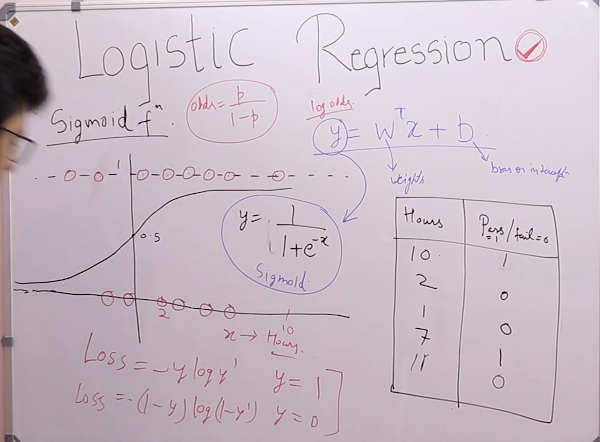 Logistic Regression
Sigmoid fⁿ.
odds = p / 1-p
log odds.
y = wᵀx + b
weights
bias or intercept
1
0.5
y = 1 / 1+e⁻ˣ
Sigmoid
2
10
x → Hours.
Hours Pass=1/fail=0
10 1
2 0
1 0
7 1
11 0
Loss = -y log y' y = 1
Loss = -(1-y) log(1-y') y = 0